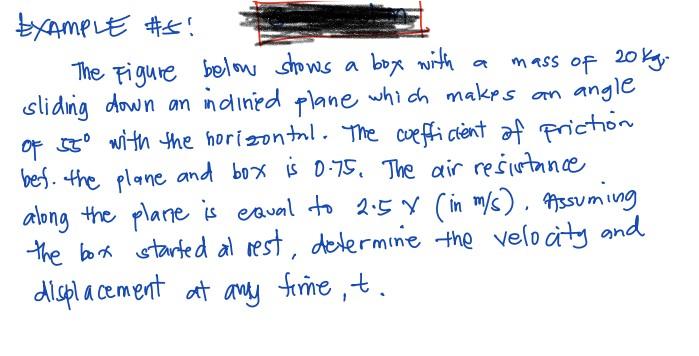 EXAMPLE #5:
The Figure below shows a box with a mass of 20 kg.
sliding down an inclined plane which makes an angle
of 55° with the horizontal. The coefficient of Friction
bet. the plane and box is 0.75. The air resistance
along the plane is equal to 2.5 V (in m/s). Assuming
the box started at rest, determine the velocity and
displacement at any time, t.